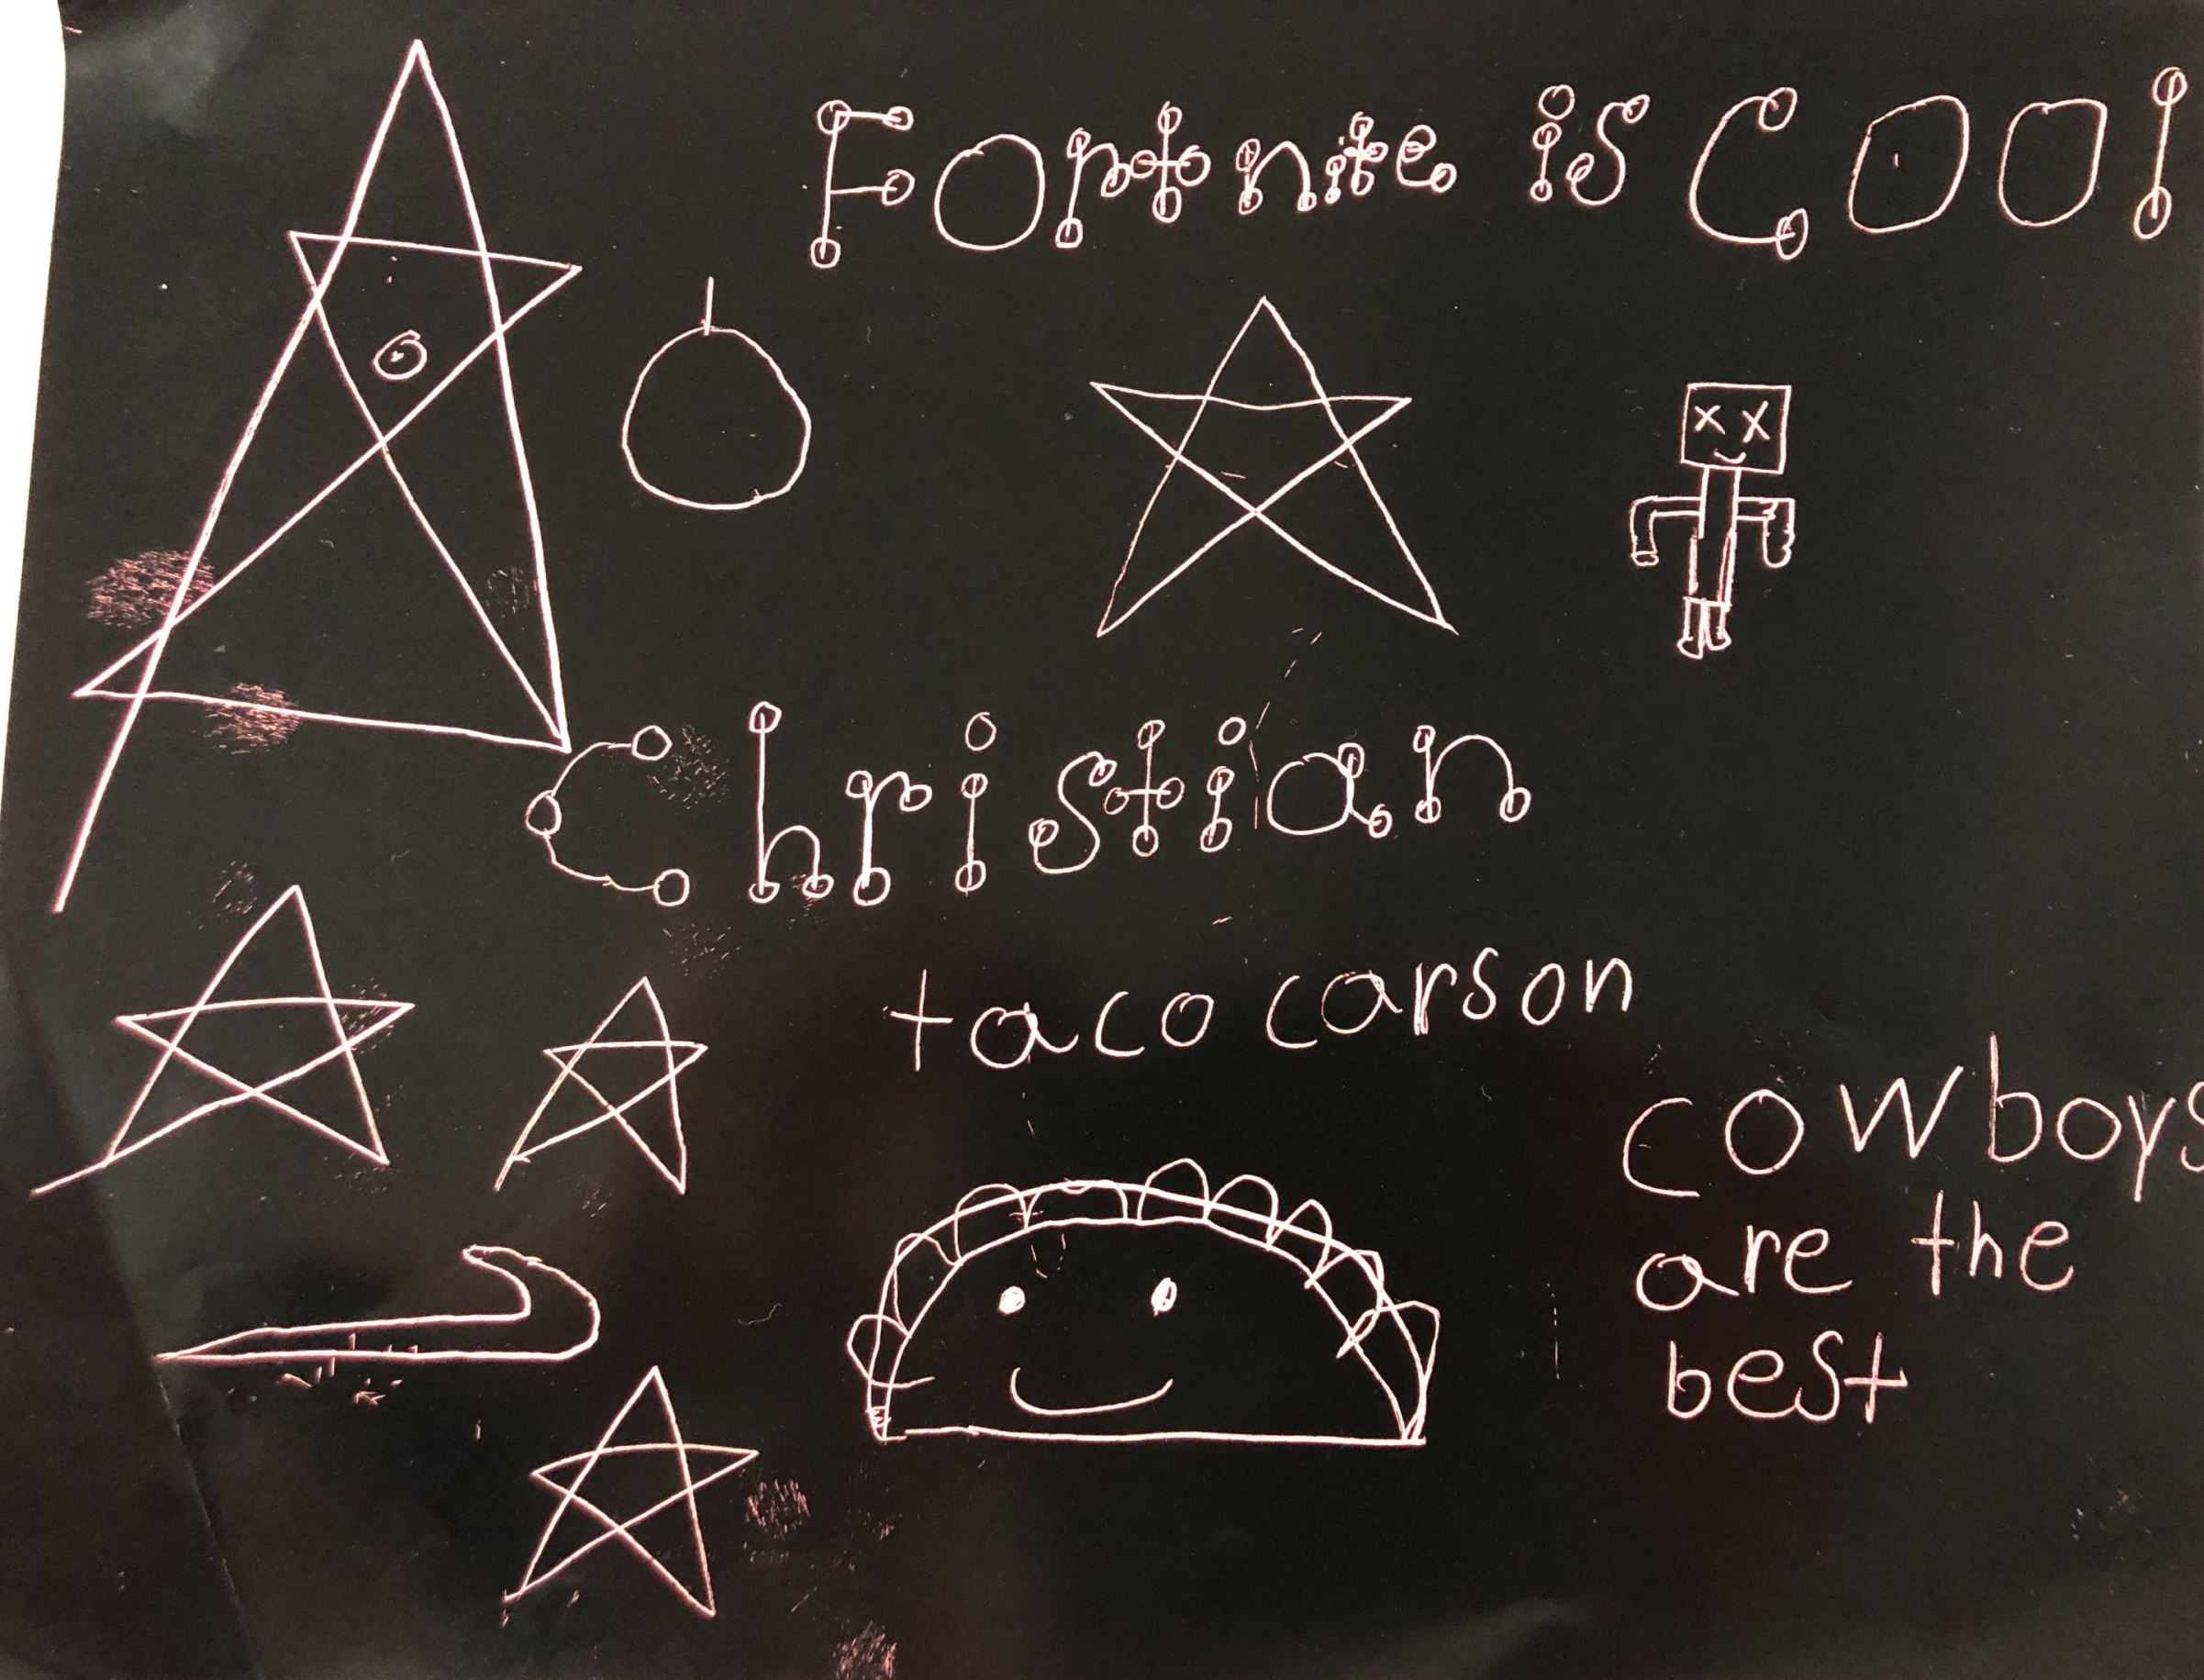 Fortnite is Cool
Christian
taco carson
cowboys
are the
best